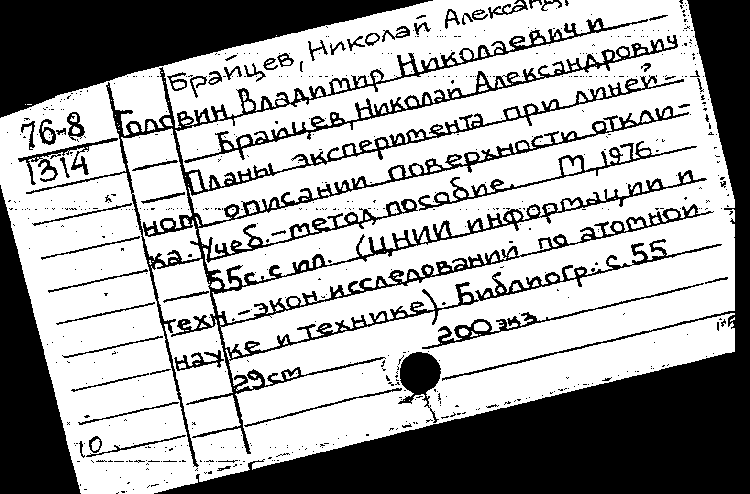 Брайцев, Николай Александ
76-8
1314
Головин, Владимир Николаевич и
Брайцев, Николай Александрович
Планы эксперимента при линей-
ном описании поверхности откли-
ка. Учеб.-метод. пособие. М, 1976.
55с. с ил. (ЦНИИ информации и
техн.-экон. исследований по атомной
науке и технике). Библиогр.: с. 55
200 экз.
29см
10